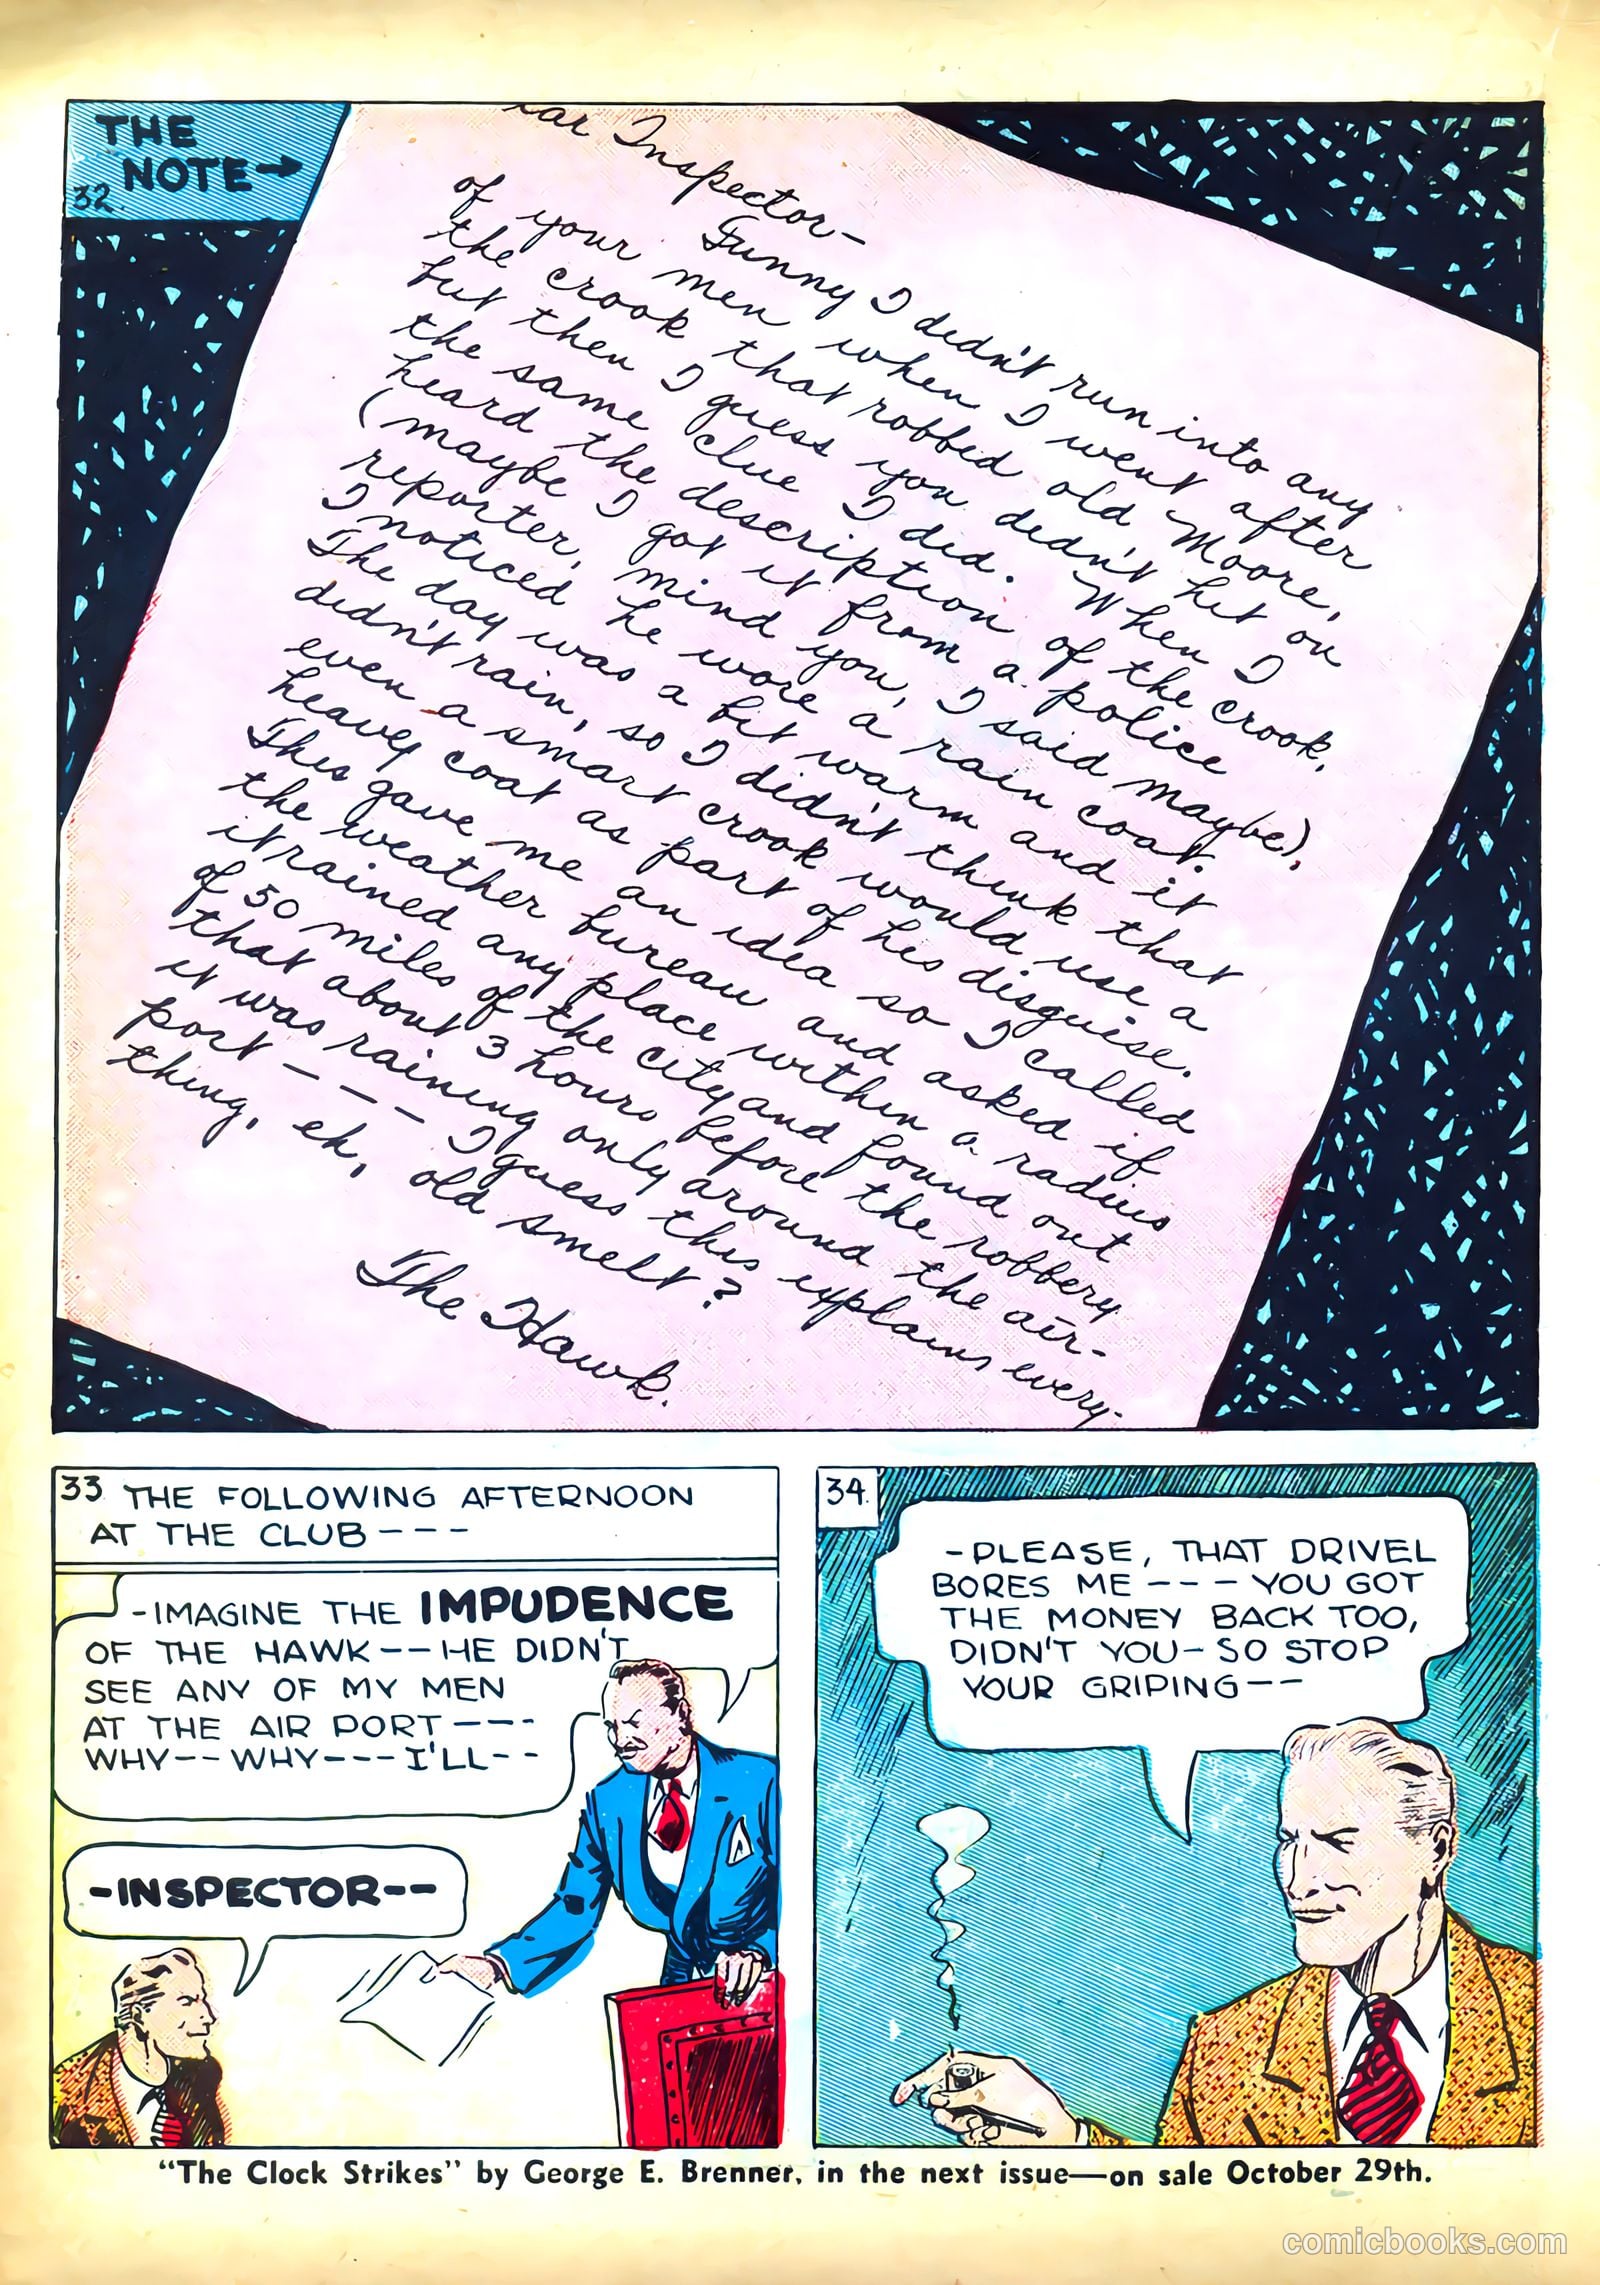 THE
NOTE→
32.
ear Inspector-
Funny I didn't run into any
of your men when I went after
the crook that robbed old Moore,
but then I guess you didn't hit on
the same clue I did. When I
heard the description of the crook,
(maybe I got it from a police
reporter, mind you, I said maybe),
I noticed he wore a rain coat.
The day was a bit warm and it
didn't rain, so I didn't think that
even a smart crook would use a
heavey coat as part of his disguise.
This gave me an idea so I called
the weather bureau and asked if
it rained any place within a radius
of 50 miles of the city and found out
that about 3 hours before the robbery
it was raining only around the air-
port - - - I guess this explains every-
thing, eh, old smelt?
The Hawk.
33 THE FOLLOWING AFTERNOON
AT THE CLUB---
-IMAGINE THE IMPUDENCE
OF THE HAWK--HE DIDN'T
SEE ANY OF MY MEN
AT THE AIR PORT---
WHY--WHY---I'LL--
-INSPECTOR--
34.
-PLEASE, THAT DRIVEL
BORES ME---YOU GOT
THE MONEY BACK TOO,
DIDN'T YOU-SO STOP
YOUR GRIPING--
"The Clock Strikes" by George E. Brenner, in the next issue—on sale October 29th.
comicbooks.com